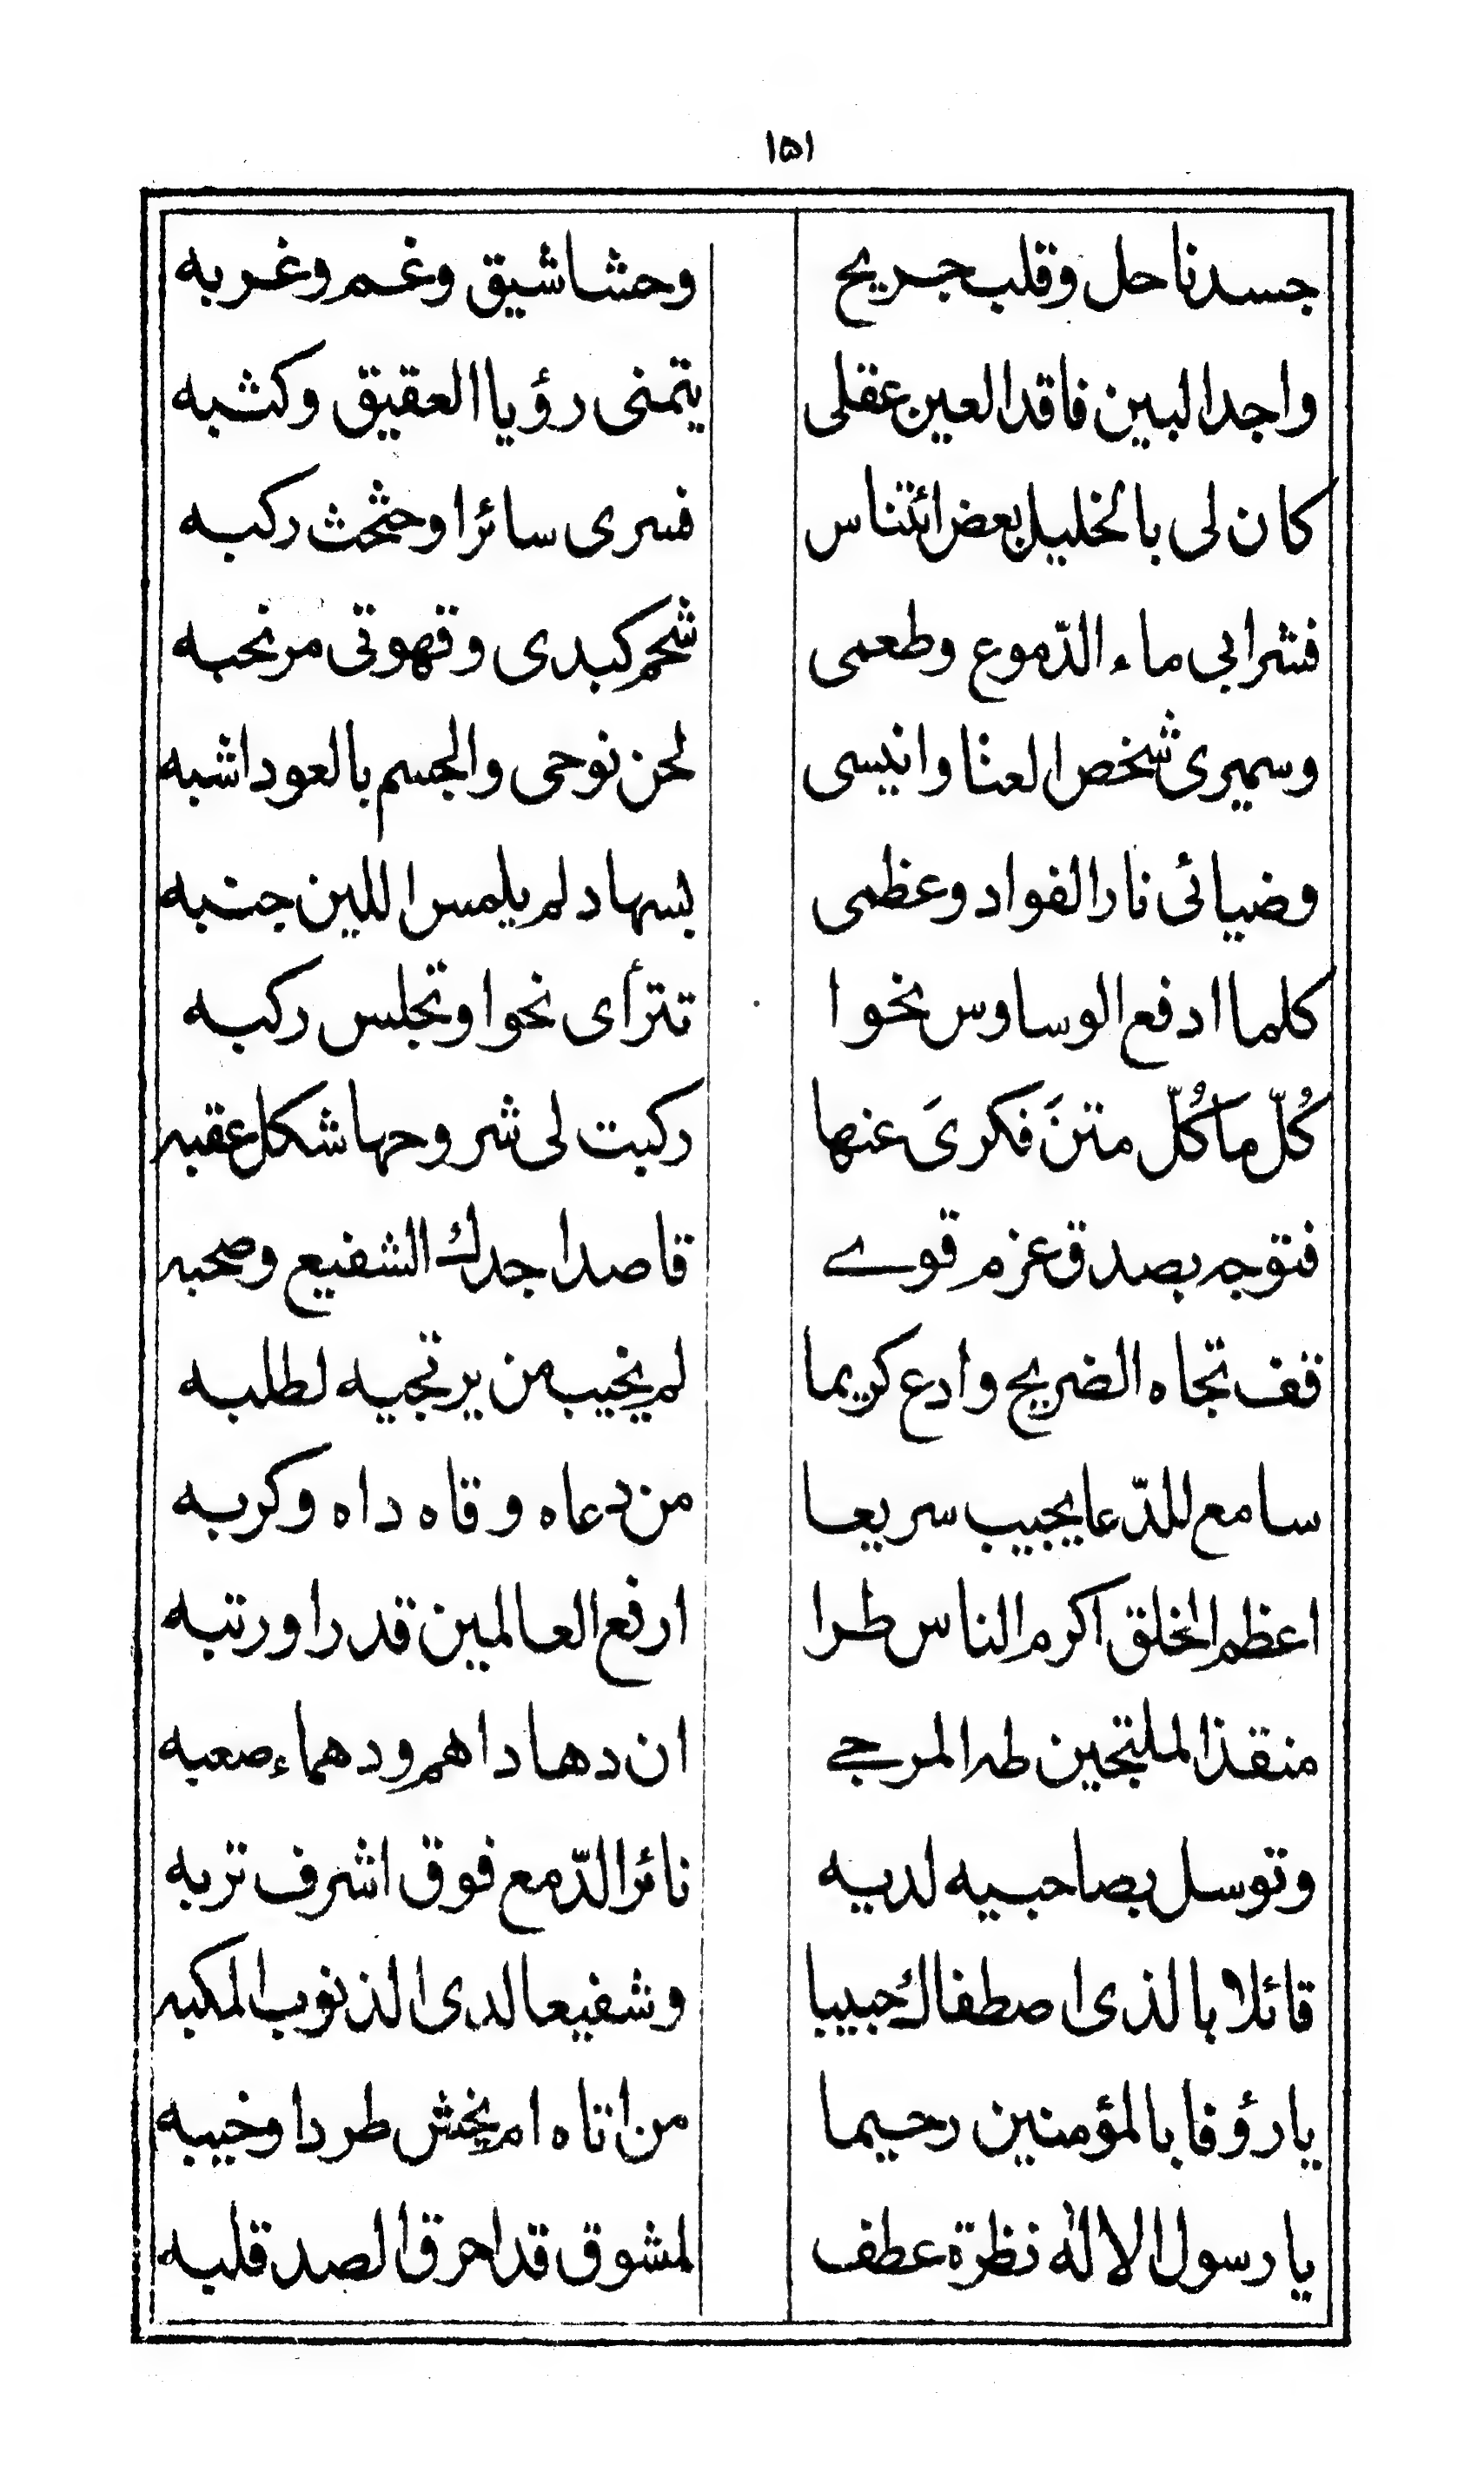 ١٥١
جسد ناحل وقلب جريح وحشا شيق وغم وغربه
واجد البين فاقد العين عقلى يتمنى رؤيا العقيق وكثبه
كان لى بالخليل بعض ائتناس فسرى سائرا وحثحث ركبه
فشرابى ماء الدّموع وطعمى شحم كبدى وقهوتى مر نحبه
وسميرى شخص العنا وانيسى لحن نوحى والجسم بالعود اشبه
وضيائى نار الفواد وعظمى بسهاد لم يلمس اللين جنبه
كلما ادفع الوساوس نحوا تترأى نحوا وتجلس ركبه
كُلّ مَا كُلّ متنَ فكرىَ عنها ركبت لى شروحها شكل عقبه
فتوجه بصدق عزم قوے قاصدا جدك الشفيع وصحبه
قف تجاه الضريح وادع كريما لم يخيب من يرتجيه لطلبه
سامع للدّعا يجيب سريعا من دعاه وقاه داه وكربه
اعظم الخلق اكرم الناس طرا ارفع العالمين قدرا ورتبه
منقذ الملتجين طه المرجے ان دها داهم ودهماء صعبه
وتوسل بصاحبيه لديه ناثر الدّمع فوق اشرف تربه
قائلا بالذى اصطفاك حبيبا وشفيعا لدى الذنوب المكبه
يا رؤفا بالمؤمنين رحيما من اتاه لم يخش طردا وخيبه
يا رسول الاله نظرة عطف لمشوق قد احرق الصد قلبه